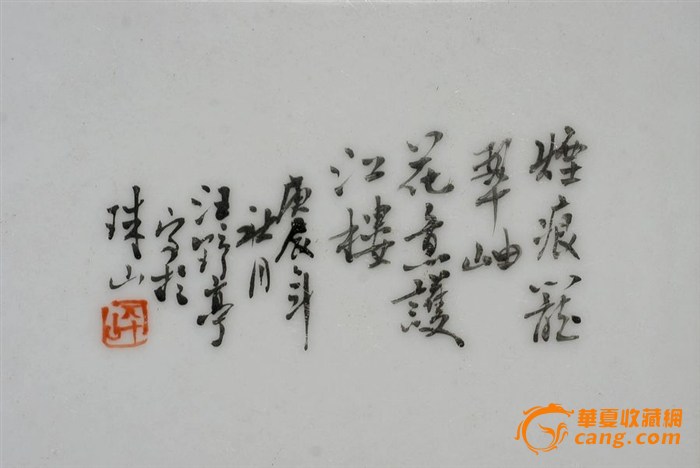 煙痕籠
翠岫
花意護
江樓
庚辰年
秋月
汪野亭
寫於
珠山
華夏收藏網
cang.com